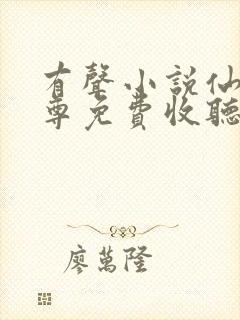 有聲小說仙
尊免費收聽
廖萬隆